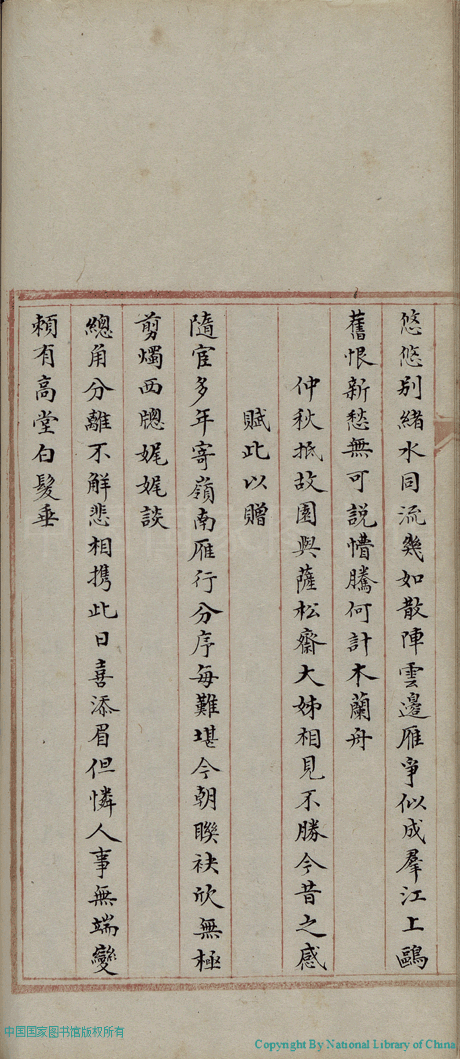 悠悠別緒水同流幾如散陣雲邊雁爭似成羣江上鷗
舊恨新愁無可説懵騰何計木蘭舟
仲秋抵故園與薩松齋大姊相見不勝今昔之感
賦此以贈
隨宦多年寄嶺南雁行分序每難堪今朝聯袂欣無極
剪燭西牕娓娓談
總角分離不解悲相携此日喜添眉但憐人事無端變
頼有高堂白髮垂
中国国家图书馆版权所有
Copyright By National Library of China